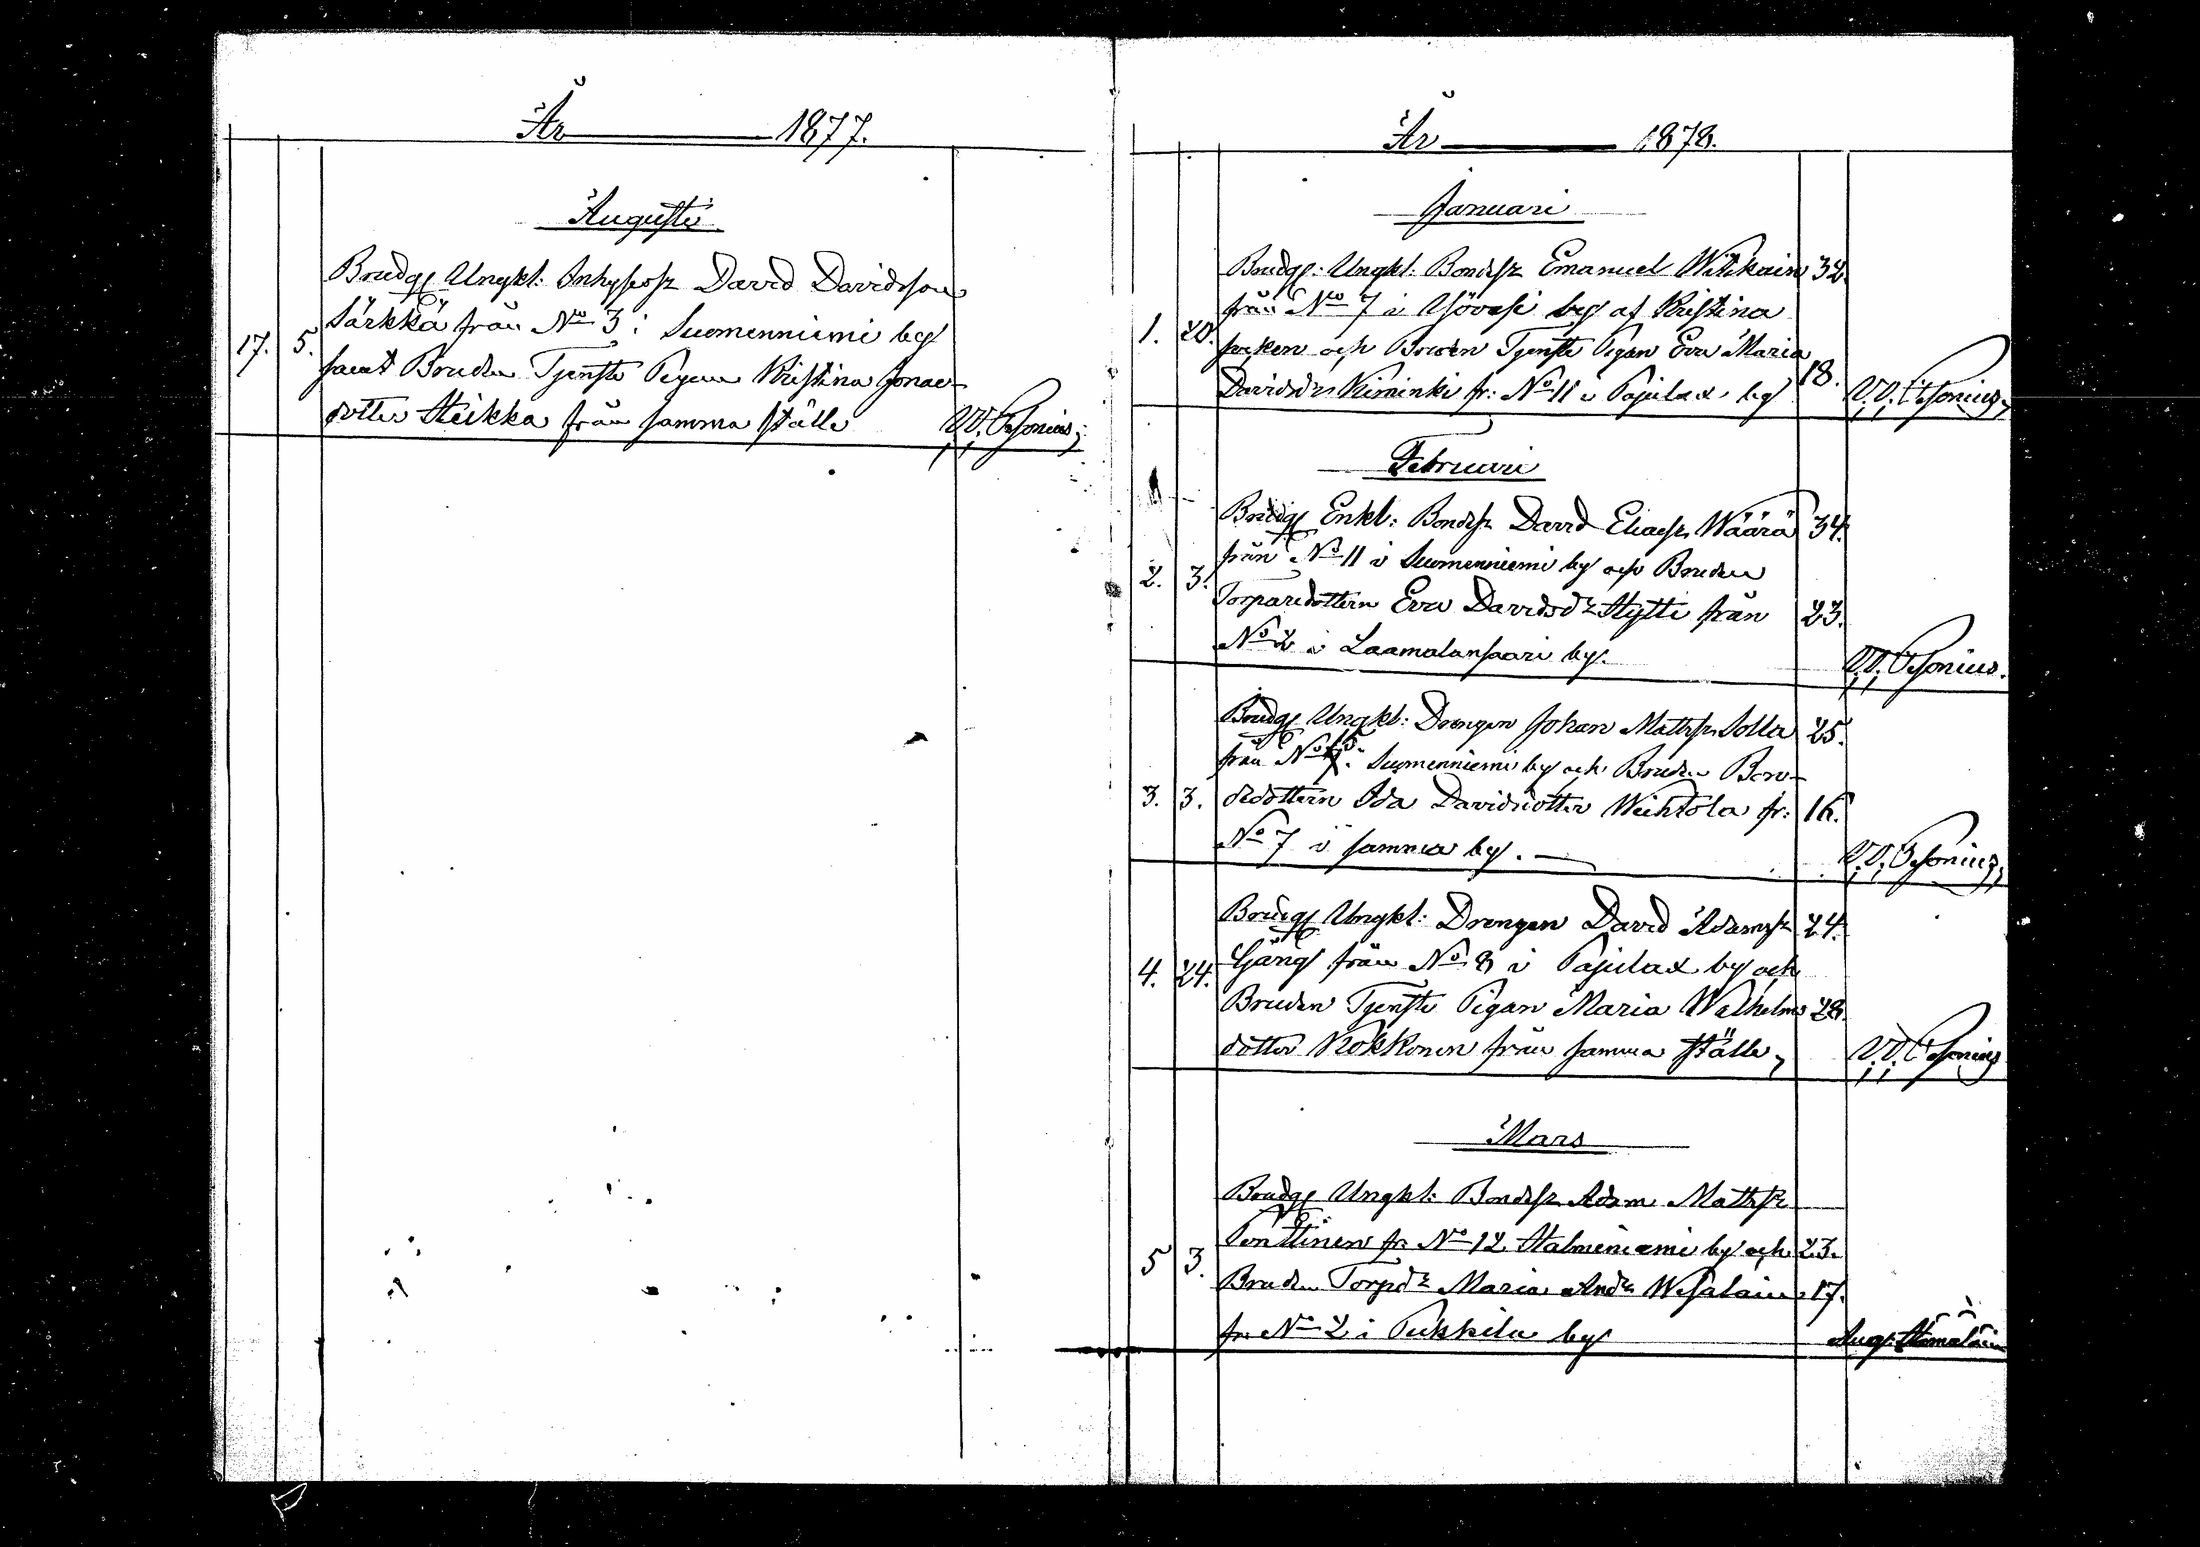 År 1877.
Augusti
Brudg. Ungkl: Inhysessz David Davidsson
Särkkä från No 3 i Suomenniemi by
17. 5. samt Bruden Tjenste Pigan Kristina Jonae-
dotter Heikka från samma ställe
År 1878.
Januari
Brudg: Ungkl: Bondesz Emanuel 32
från No 7 i by af Kristina
1. 20. socken och Bruden Tjenste Pigan Eva Maria
Davidsdr Kiminki fr: No 11 i Pajulax by 18.
Februari
Brudg Enkl: Bondesz David Eliassz Wäärä 34.
från No 11 i Suomenniemi by och Bruden
2. 3. Torparedottern Eva Davidsdr Hytti från 23.
No 2 i Laamalansaari by.
Brudg Ungkl: Drengen Johan Mattssz Solla 25.
från No i Suomenniemi by och Bruden Bon-
3. 3. dedottern Ida Davidsdotter Weihtola fr: 16.
No 7 i samma by.
Brudg Ungkl: Drengen David Adamssz 24.
4. 24. Gäng från No 8 i Pajulax by och
Bruden Tjenste Pigan Maria Wilhelms 28.
dotter Kokkonen från samma ställe
Mars
Brudg Ungkl: Bondesz Adam Mattssz
Penttinen fr No 12 Halmeniemi by och 23.
5 3. Bruden Torpdr Maria Andr Wesalain 17.
fr No 2 i Pukkila by